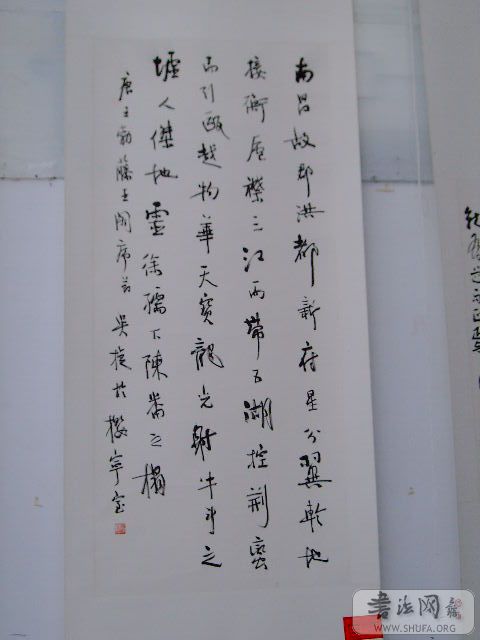 南昌故郡洪都新府星分翼軫地
接衡廬襟三江而帶五湖控荆蠻
而引甌越物華天寶龍光射牛斗之
墟人傑地靈徐孺下陳蕃之榻
唐王勃滕王閣序句 吳捷於攖寧室
書法网
WWW.SHUFA.ORG